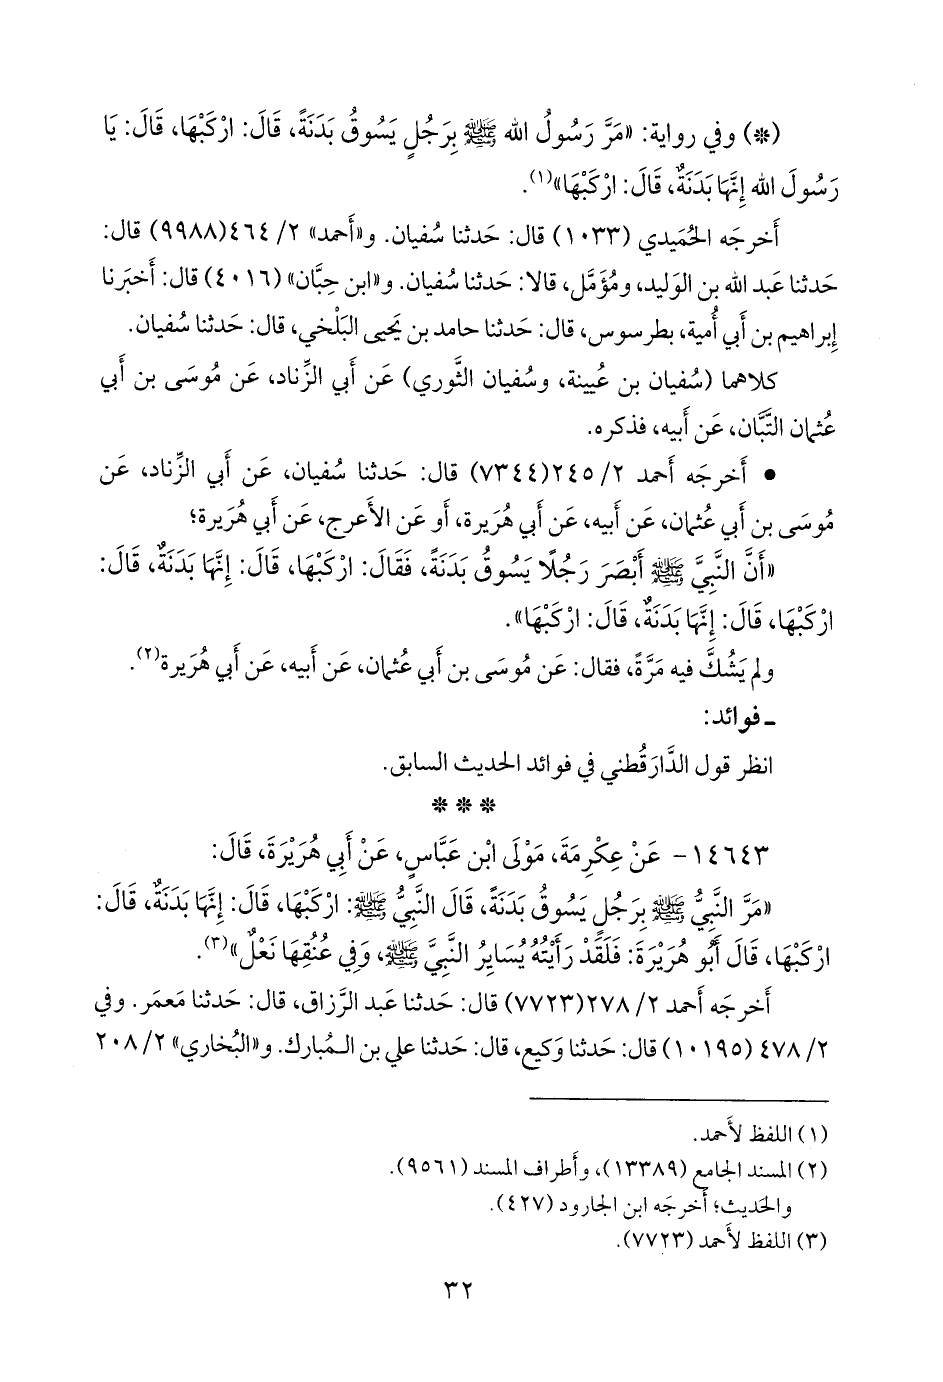 (※) وفي رواية: «مَرَّ رَسُولُ الله ﷺ بِرَجُلٍ يَسُوقُ بَدَنَةً، قَالَ: ارْكَبْهَا، قَالَ: يَا
رَسُولَ الله إِنَّهَا بَدَنَةٌ، قَالَ: ارْكَبْهَا»(١).
أَخرجَه الحُميدي (١٠٣٣) قال: حَدثنا سُفيان. و«أَحمد» ٢/ ٤٦٤(٩٩٨٨) قال:
حَدثنا عَبد الله بن الوَليد، ومُؤَمَّل، قالا: حَدثنا سُفيان. و«ابن حِبَّان» (٤٠١٦) قال: أَخبَرنا
إِبراهيم بن أَبي أُمية، بطرسوس، قال: حَدثنا حامد بن يَحيى البَلْخي، قال: حَدثنا سُفيان.
كلاهما (سُفيان بن عُيينة، وسُفيان الثَّوري) عَن أَبي الزِّناد، عَن مُوسَى بن أَبي
عُثمان التَّبَّان، عَن أَبيه، فذكره.
• أَخرجَه أَحمد ٢/ ٢٤٥(٧٣٤٤) قال: حَدثنا سُفيان، عَن أَبي الزِّناد، عَن
مُوسَى بن أَبي عُثمان، عَن أَبيه، عَن أَبي هُرَيرة، أَو عَن الأَعرج، عَن أَبي هُرَيرة؛
«أَنَّ النَّبيَّ ﷺ أَبْصَرَ رَجُلًا يَسُوقُ بَدَنَةً، فَقَالَ: ارْكَبْهَا، قَالَ: إِنَّهَا بَدَنَةٌ، قَالَ:
ارْكَبْهَا، قَالَ: إِنَّهَا بَدَنَةٌ، قَالَ: ارْكَبْهَا».
ولم يَشُكَّ فيه مَرَّةً، فقال: عَن مُوسَى بن أَبي عُثمان، عَن أَبيه، عَن أَبي هُرَيرة(٢).
ـ فوائد:
انظر قول الدَّارَقُطني في فوائد الحديث السابق.
※ ※ ※
١٤٦٤٣- عَنْ عِكْرِمَةَ، مَوْلَى ابْن عَبَّاسٍ، عَنْ أَبِي هُرَيْرَةَ، قَالَ:
«مَرَّ النَّبيُّ ﷺ بِرَجُلٍ يَسُوقُ بَدَنَةً، قَالَ النَّبيُّ ﷺ: ارْكَبْهَا، قَالَ: إِنَّهَا بَدَنَةٌ، قَالَ:
ارْكَبْهَا، قَالَ أَبُو هُرَيْرَةَ: فَلَقَدْ رَأَيْتُهُ يُسَايِرُ النَّبيَّ ﷺ، وَفِي عُنُقِهَا نَعْلٌ»(٣).
أَخرجَه أَحمد ٢/ ٢٧٨(٧٧٢٣) قال: حَدثنا عَبد الرَّزاق، قال: حَدثنا مَعمَر. وفي
٢/ ٤٧٨ (١٠١٩٥) قال: حَدثنا وَكيع، قال: حَدثنا علي بن الـمُبارك. و«البُخاري» ٢/ ٢٠٨
(١) اللفظ لأَحمد.
(٢) المسند الجامع (١٣٣٨٩)، وأَطراف المسند (٩٥٦١).
والحَديث؛ أَخرجَه ابن الجارود (٤٢٧).
(٣) اللفظ لأَحمد (٧٧٢٣).
٣٢